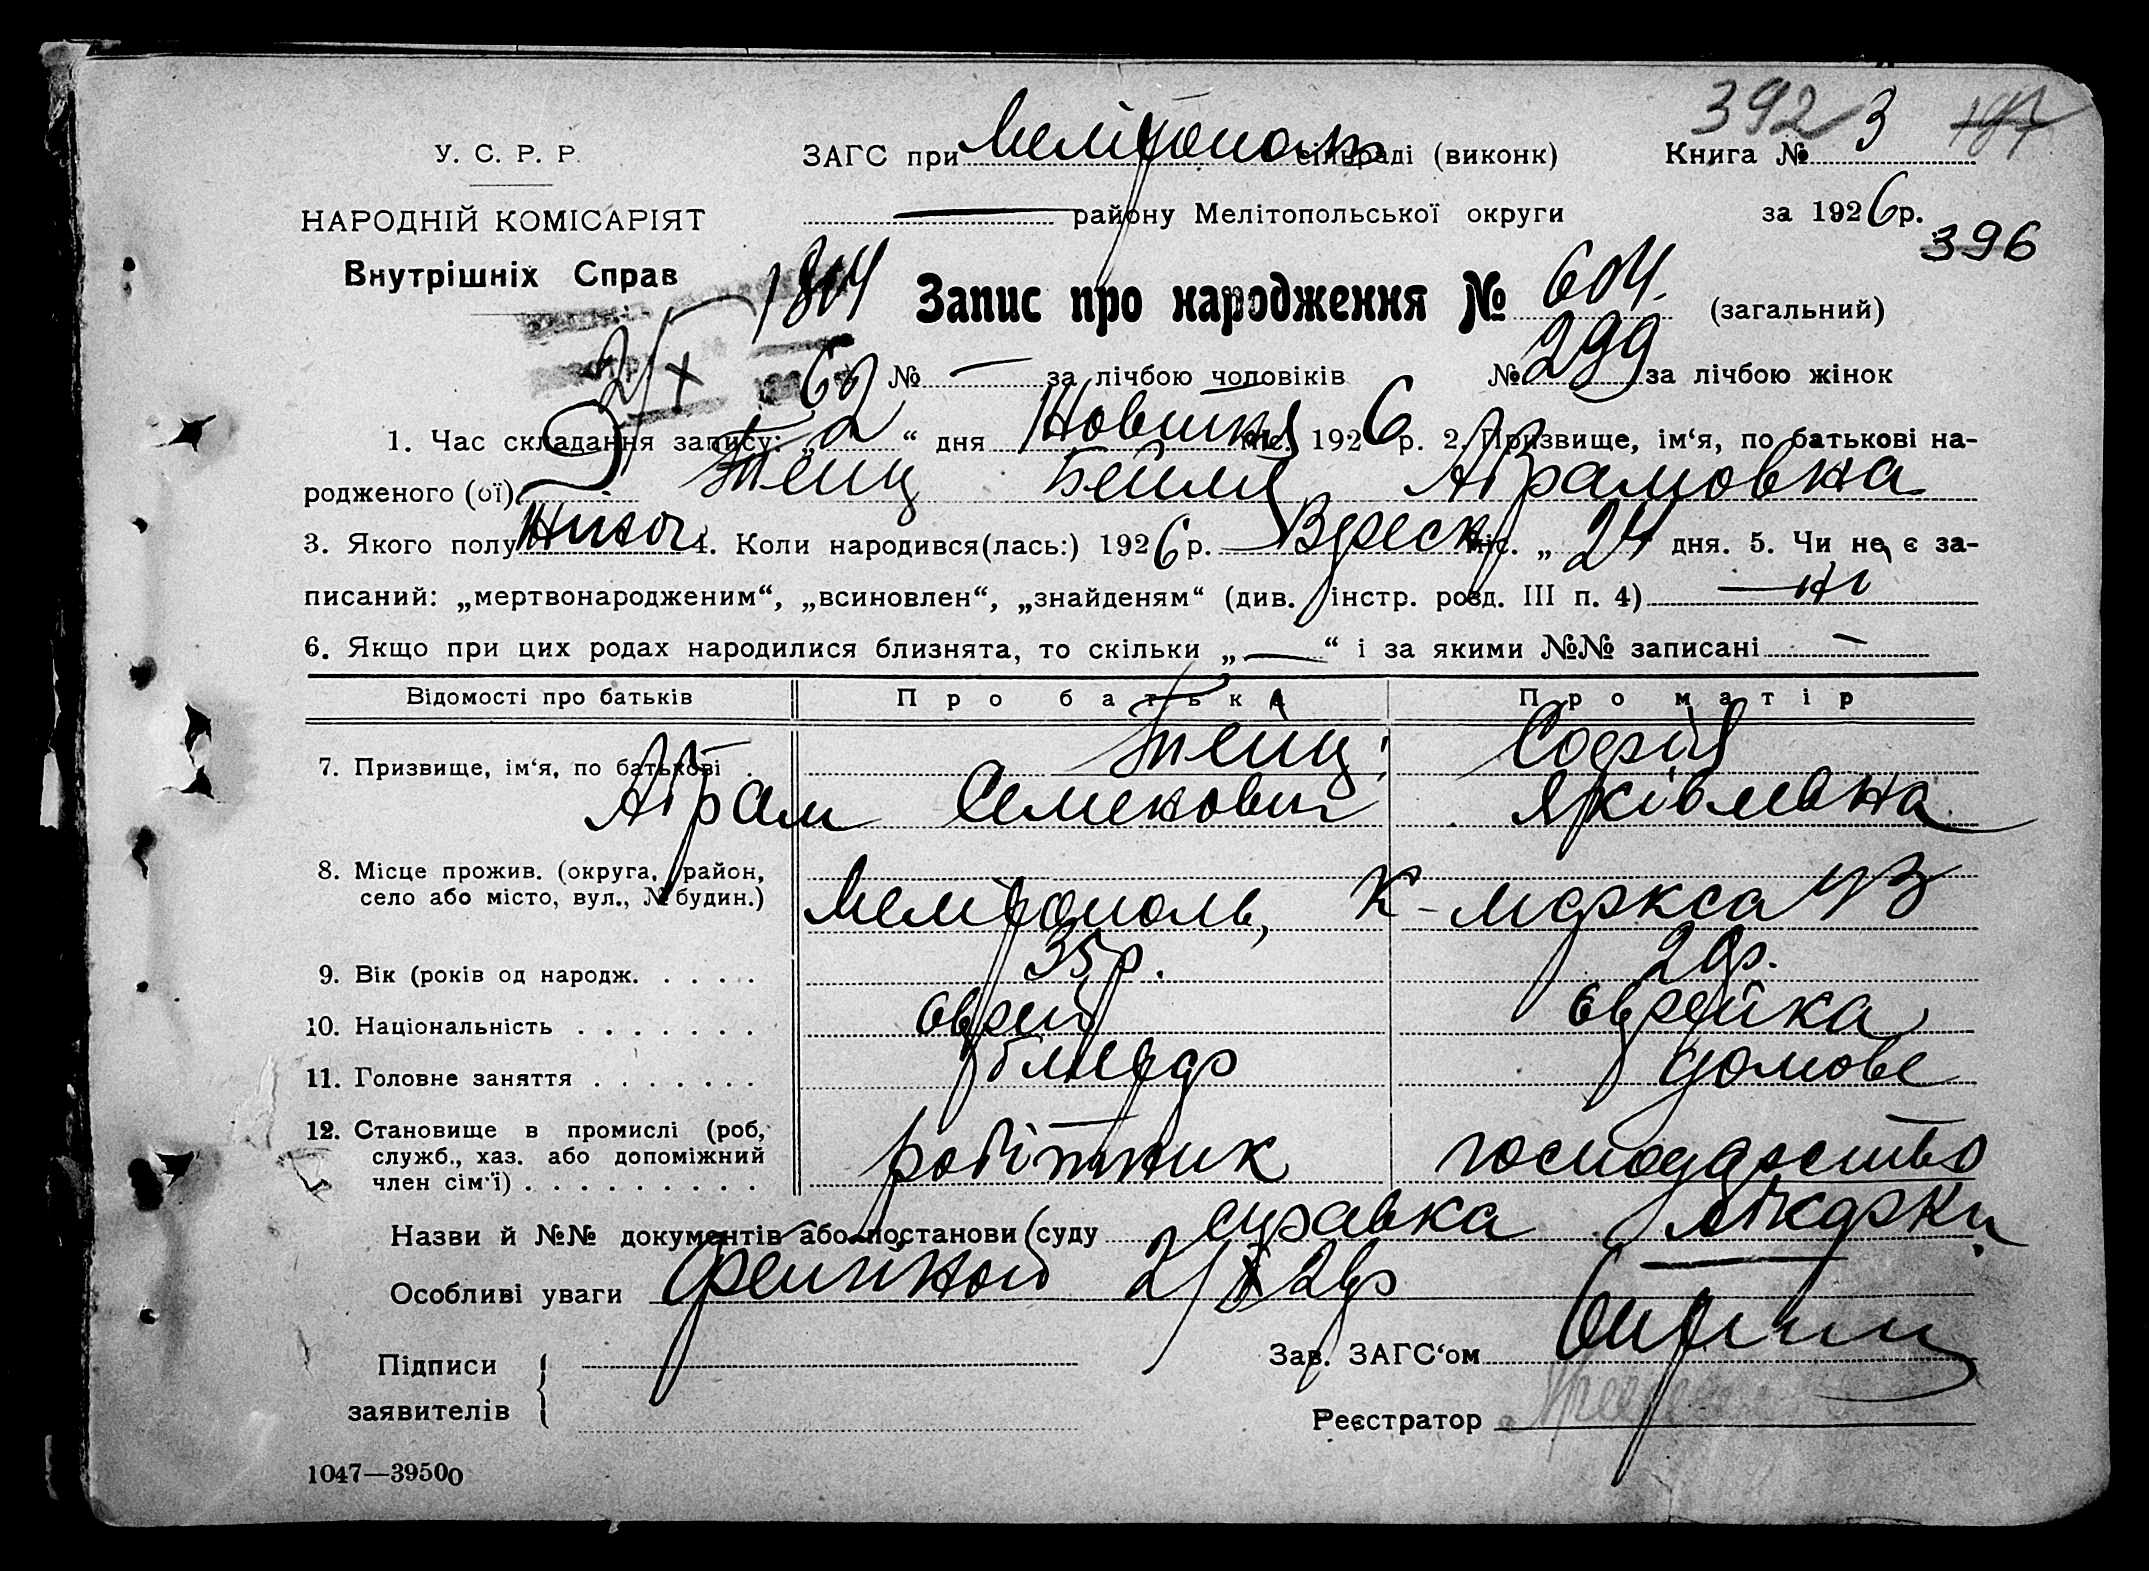 392 3
У. С. Р. Р.
ЗАГС при Мелітополь сільраді (виконк)
Книга №
НАРОДНІЙ КОМІСАРІЯТ
району Мелітопольської округи
за 1926 р.
396
Внутрішніх Справ
1804
Запис про народження № 604. (загальний)
№ — за лічбою чоловіків № 299 за лічбою жінок
1. Час складання запису: „2“ дня міс. 1926 р. 2. Призвище, ім‘я, по батькові на-
родженого (ої) Бейля Абрамовна
3. Якого полу Жіноч. 4. Коли народився(лась:) 1926 р. Вереск міс. „24 дня. 5. Чи не є за-
писаний: „мертвонародженим“, „всиновлен“, „знайденям“ (див. інстр. розд. III п. 4) — ні
6. Якщо при цих родах народилися близнята, то скільки „—“ і за якими №№ записані —
Відомості про батьків Про батька Про матір
7. Призвище, ім‘я, по батькові . Софія
Абрам Семенович Яківлевна
8. Місце прожив. (округа, район,
село або місто, вул., № будин.) Мелітополь, К-Маркса
9. Вік (років од народж. . . . . 35 р.
10. Національність . . . . . . . Єврей Єврейка
11. Головне заняття . . . . . . . домове
12. Становище в промислі (роб,
служб., хаз. або допоміжний
член сім‘ї) . . . . . . . . . робітник господарство
Назви й №№ документів або постанови суду справка
Особливі уваги
Підписи
заявителів
Зав. ЗАГС‘ом
Реєстратор
1047—39500